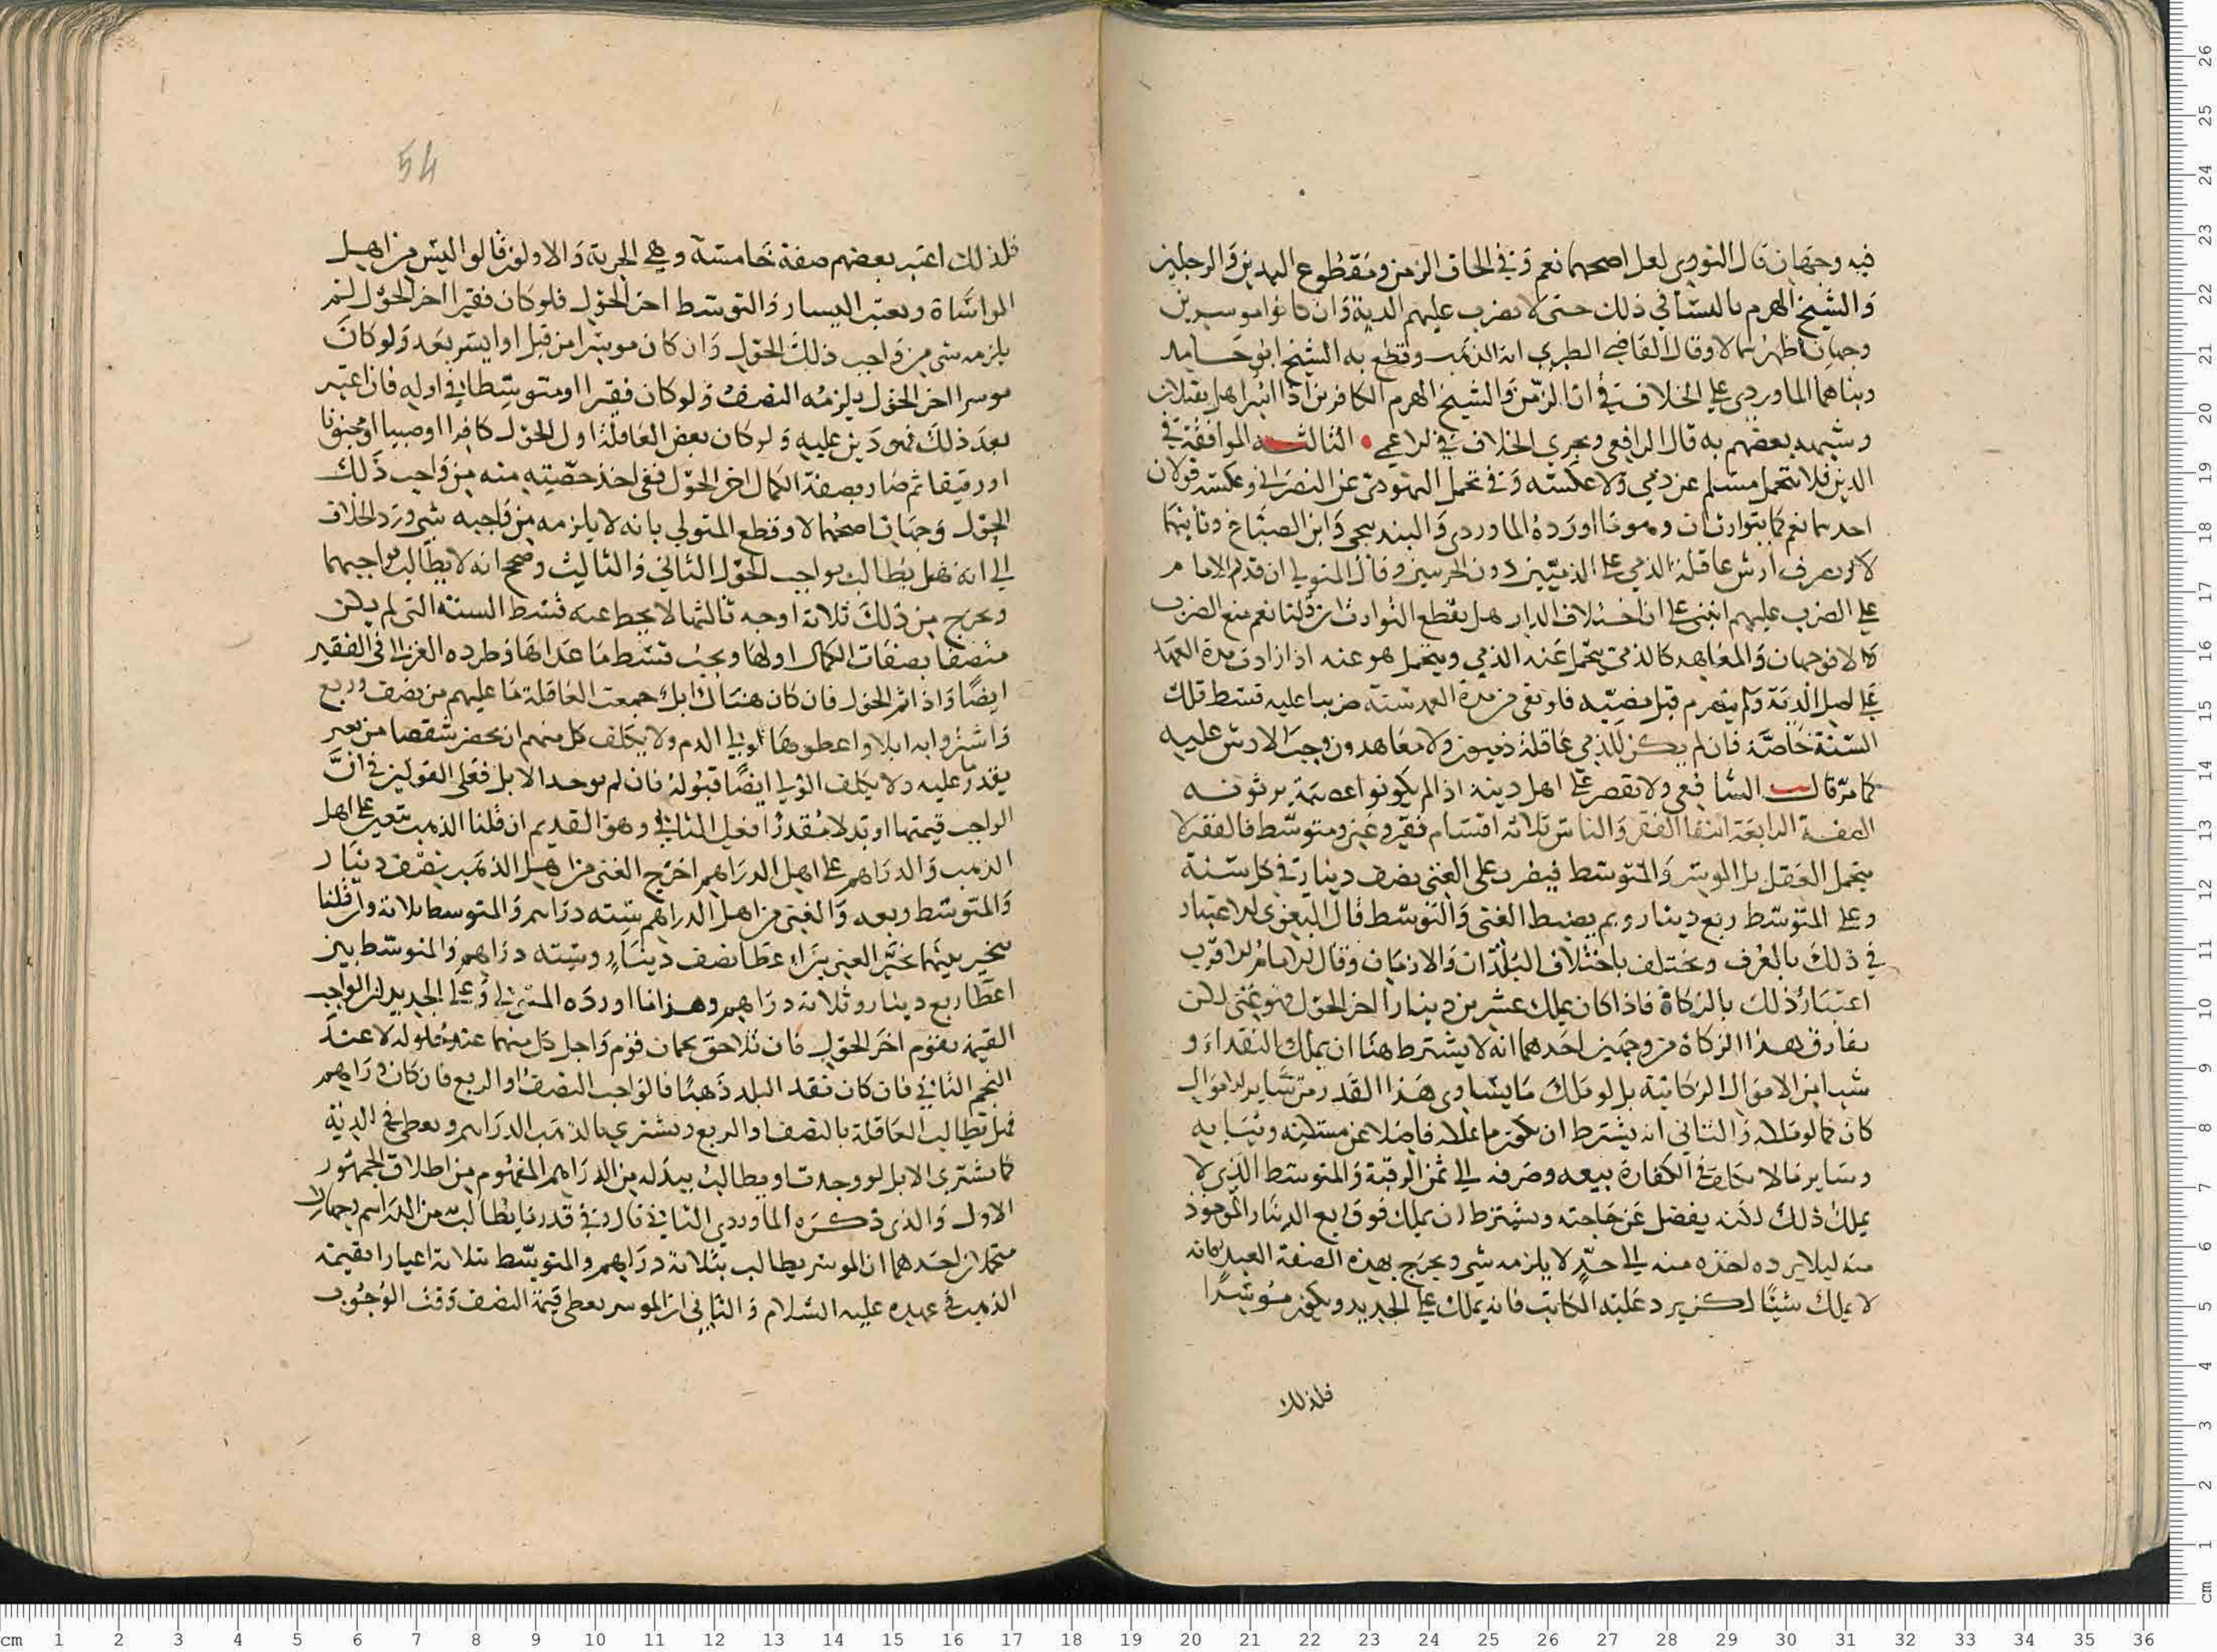 فيه وجهان قال النووي لعل اصحهما نعم وفي الحاق الزمن ومقطوع اليدين والرجلين
والشيخ الهرم بالنسا في ذلك حتى لا تضرب عليهم الدية وان كانوا موسرين
وجهان اظهرهما لا وقال القاضي الطبري انه المذهب وقطع به الشيخ ابو حامد
وبناهما الماوردي على الخلاف في ان الزمن والشيخ الهرم الكافرين اذا اسرا هل يقتلان
وشبهه بعضهم به قال الرافعي ويجري الخلاف في الاعمى الثالثه الموافقة في
الدين فلا يتحمل مسلم عن ذمي ولا عكسه وفي تحمل اليهودي عن النصراني وعكسه قولان
احدهما نعم كما يتوارثان وهو ما اورده الماوردي والبندنيجي وابن الصباغ وثانيهما
لا ويصرف ارش عاقلة الذمي على الذميين دون الحربيين وقال المتولي ان قدم الامام
على الضرب عليهم انبنى على ان اختلاف الدار هل يقطع التوارث ان قلنا نعم منع الضرب
والا فوجهان والمعاهد كالذمي يتحمل عنه الذمي ويتحمل هو عنه اذا زادت مدة العهد
على اجل الدية ولم ينصرم قبل مضيه فلو بقي من مدة العهد سنة ضربنا عليه قسط تلك
السنة خاصة فان لم يكن للذمي عاقلة ذميون ولا معاهدون وجب الارش عليه
كما مر قال الشافعي ولا تقصر على اهل دينه اذا لم يكونوا عصبة يرثونه
الصفة الرابعة انتفا الفقر والناس ثلاثة اقسام فقير وغني ومتوسط فالفقير لا
يتحمل العقل بل الموسر والمتوسط فيضرب على الغني نصف دينار في كل سنة
وعلى المتوسط ربع دينار وبم يضبط الغنى والتوسط قال البغوي الاعتبار
في ذلك بالعرف ويختلف باختلاف البلدان والازمان وقال الامام الاقرب
اعتبار ذلك بالزكاة فاذا كان يملك عشرين دينارا اخر الحول فهو غني لكن
يفارق هذا الزكاة من وجهين احدهما انه لا يشترط هنا ان يملك النقد او
شيا من الاموال الزكاتية بل لو ملك ما يساوي هذا القدر من ساير الاموال
كان كما لو ملكه والثاني انه يشترط ان يكون ما يملكه فاضلا عن مسكنه وثيابه
وساير ما لا يكلف في الكفارة بيعه وصرفه الى ثمن الرقبة والمتوسط الذي لا
يملك ذلك لكنه يفضل عن حاجته ويشترط ان يملك فوق ربع الدينار الماخوذ
منه ليلا يرده اخذه منه الى حد لا يلزمه شي ويخرج بهذه الصفة العبد فانه
لا يملك شيئا لكن يرد عليه المكاتب فانه يملك على الجديد ويكون موسرا
فلذلك
54
فلذلك اعتبر بعضهم صفة خامسة وهي الحرية والاولون قالوا ليس من اهل
المواساة ويعتبر اليسار والتوسط اخر الحول فلو كان فقيرا اخر الحول لم
يلزمه شي من واجب ذلك الحول وان كان موسرا من قبل او ايسر بعد ولو كان
موسرا اخر الحول يلزمه النصف ولو كان فقيرا او متوسطا في اوله فان اعتبر
بعد ذلك فهو دين عليه ولو كان بعض العاقلة اول الحول كافرا او صبيا او مجنونا
او رقيقا ثم صار بصفة الكمال اخر الحول ففي اخذ حصته منه من واجب ذلك
الحول وجهان اصحهما لا وقطع المتولي بانه لا يلزمه من واجبه شي ورد الخلاف
الى انه هل يطالب بواجب الحول الثاني والثالث وصحح انه لا يطالب بواجبهما
ويخرج من ذلك ثلاثة اوجه ثالثها لا يحط عنه قسط السنة التي لم يكن
متصفا بصفات الكمال اولها ويجب قسط ما عداها وطرده الغزالي في الفقير
ايضا واذا تم الحول فان كان هناك ابل جمعت العاقلة ما عليهم من نصف وربع
واشتروا به ابلا واعطوها لولي الدم ولا يكلف كل منهم ان يحضر شقصا من بعير
يقدر عليه ولا يكلف الولي ايضا قبوله فان لم يوجد الابل فعلى القولين في ان
الواجب قيمتها او بدلا مقدرا فعلى الثاني وهو القديم ان قلنا الذهب يتعين على اهل
الذهب والدراهم على اهل الدراهم اخرج الغني من اهل الذهب نصف دينار
والمتوسط ربعه والغني من اهل الدراهم ستة دراهم والمتوسط ثلاثة وان قلنا
يتخير بينهما تخير الغني بين اعطا نصف دينار وستة دراهم والمتوسط بين
اعطا ربع دينار وثلاثة دراهم وهذا ما اورده المتولي وعلى الجديد ان الواجب
القيمة يقوم اخر الحول فان تلاحق نجمان قوم واجل كل منهما عند حلوله لا عند
النجم الثاني فان كان نقد البلد ذهبا فالواجب النصف او الربع فان كان دراهم
فهل تطالب العاقلة بالنصف او الربع ويشتري بالذهب الدراهم ويعطي في الدية
كما يشتري الابل لو وجدت او يطالب ببدله من الدراهم المفهوم من اطلاق الجمهور
الاول والذي ذكره الماوردي الثاني قال وفي قدر ما يطالب به من الدراهم وجهان
محتملان احدهما ان الموسر يطالب بثلاثة دراهم والمتوسط بثلاثة اعتبارا بقيمة
الذهب في عهده عليه السلام والثاني ان الموسر يعطي قيمة النصف وقت الوجوب